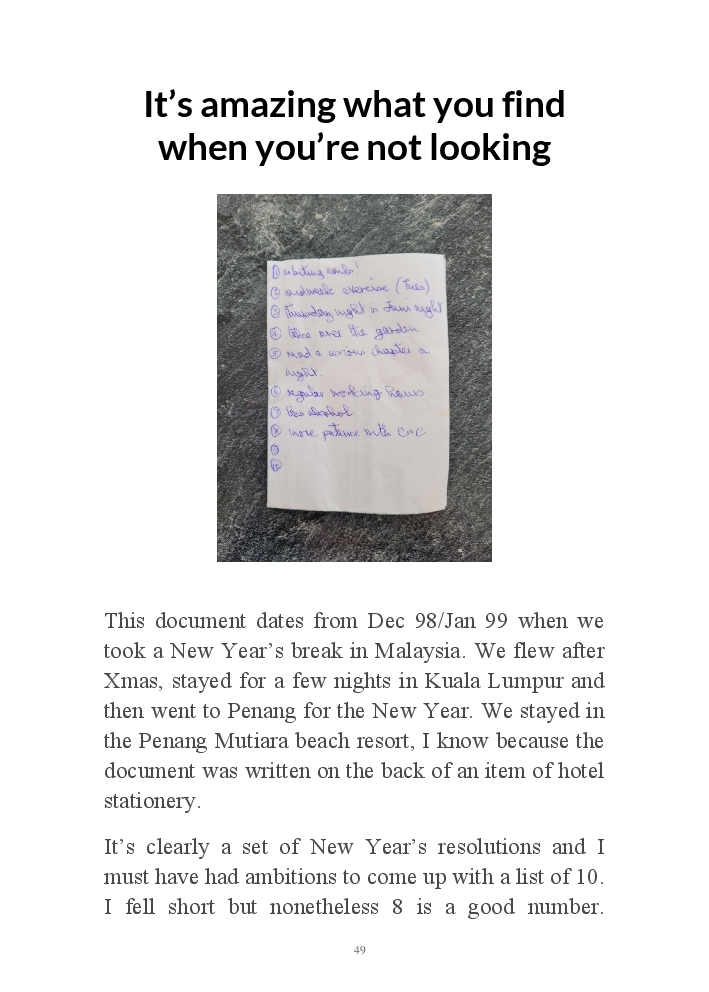 It’s amazing what you find
when you’re not looking
① nails!
② midweek exercise (Tues)
③ Thursday night is Juni night
④ take over the garden
⑤ read a serious chapter a
night.
⑥ regular working hours
⑦ less alcohol
⑧ more patience with C+C
⑨
⑩
This document dates from Dec 98/Jan 99 when we
took a New Year’s break in Malaysia. We flew after
Xmas, stayed for a few nights in Kuala Lumpur and
then went to Penang for the New Year. We stayed in
the Penang Mutiara beach resort, I know because the
document was written on the back of an item of hotel
stationery.
It’s clearly a set of New Year’s resolutions and I
must have had ambitions to come up with a list of 10.
I fell short but nonetheless 8 is a good number.
49